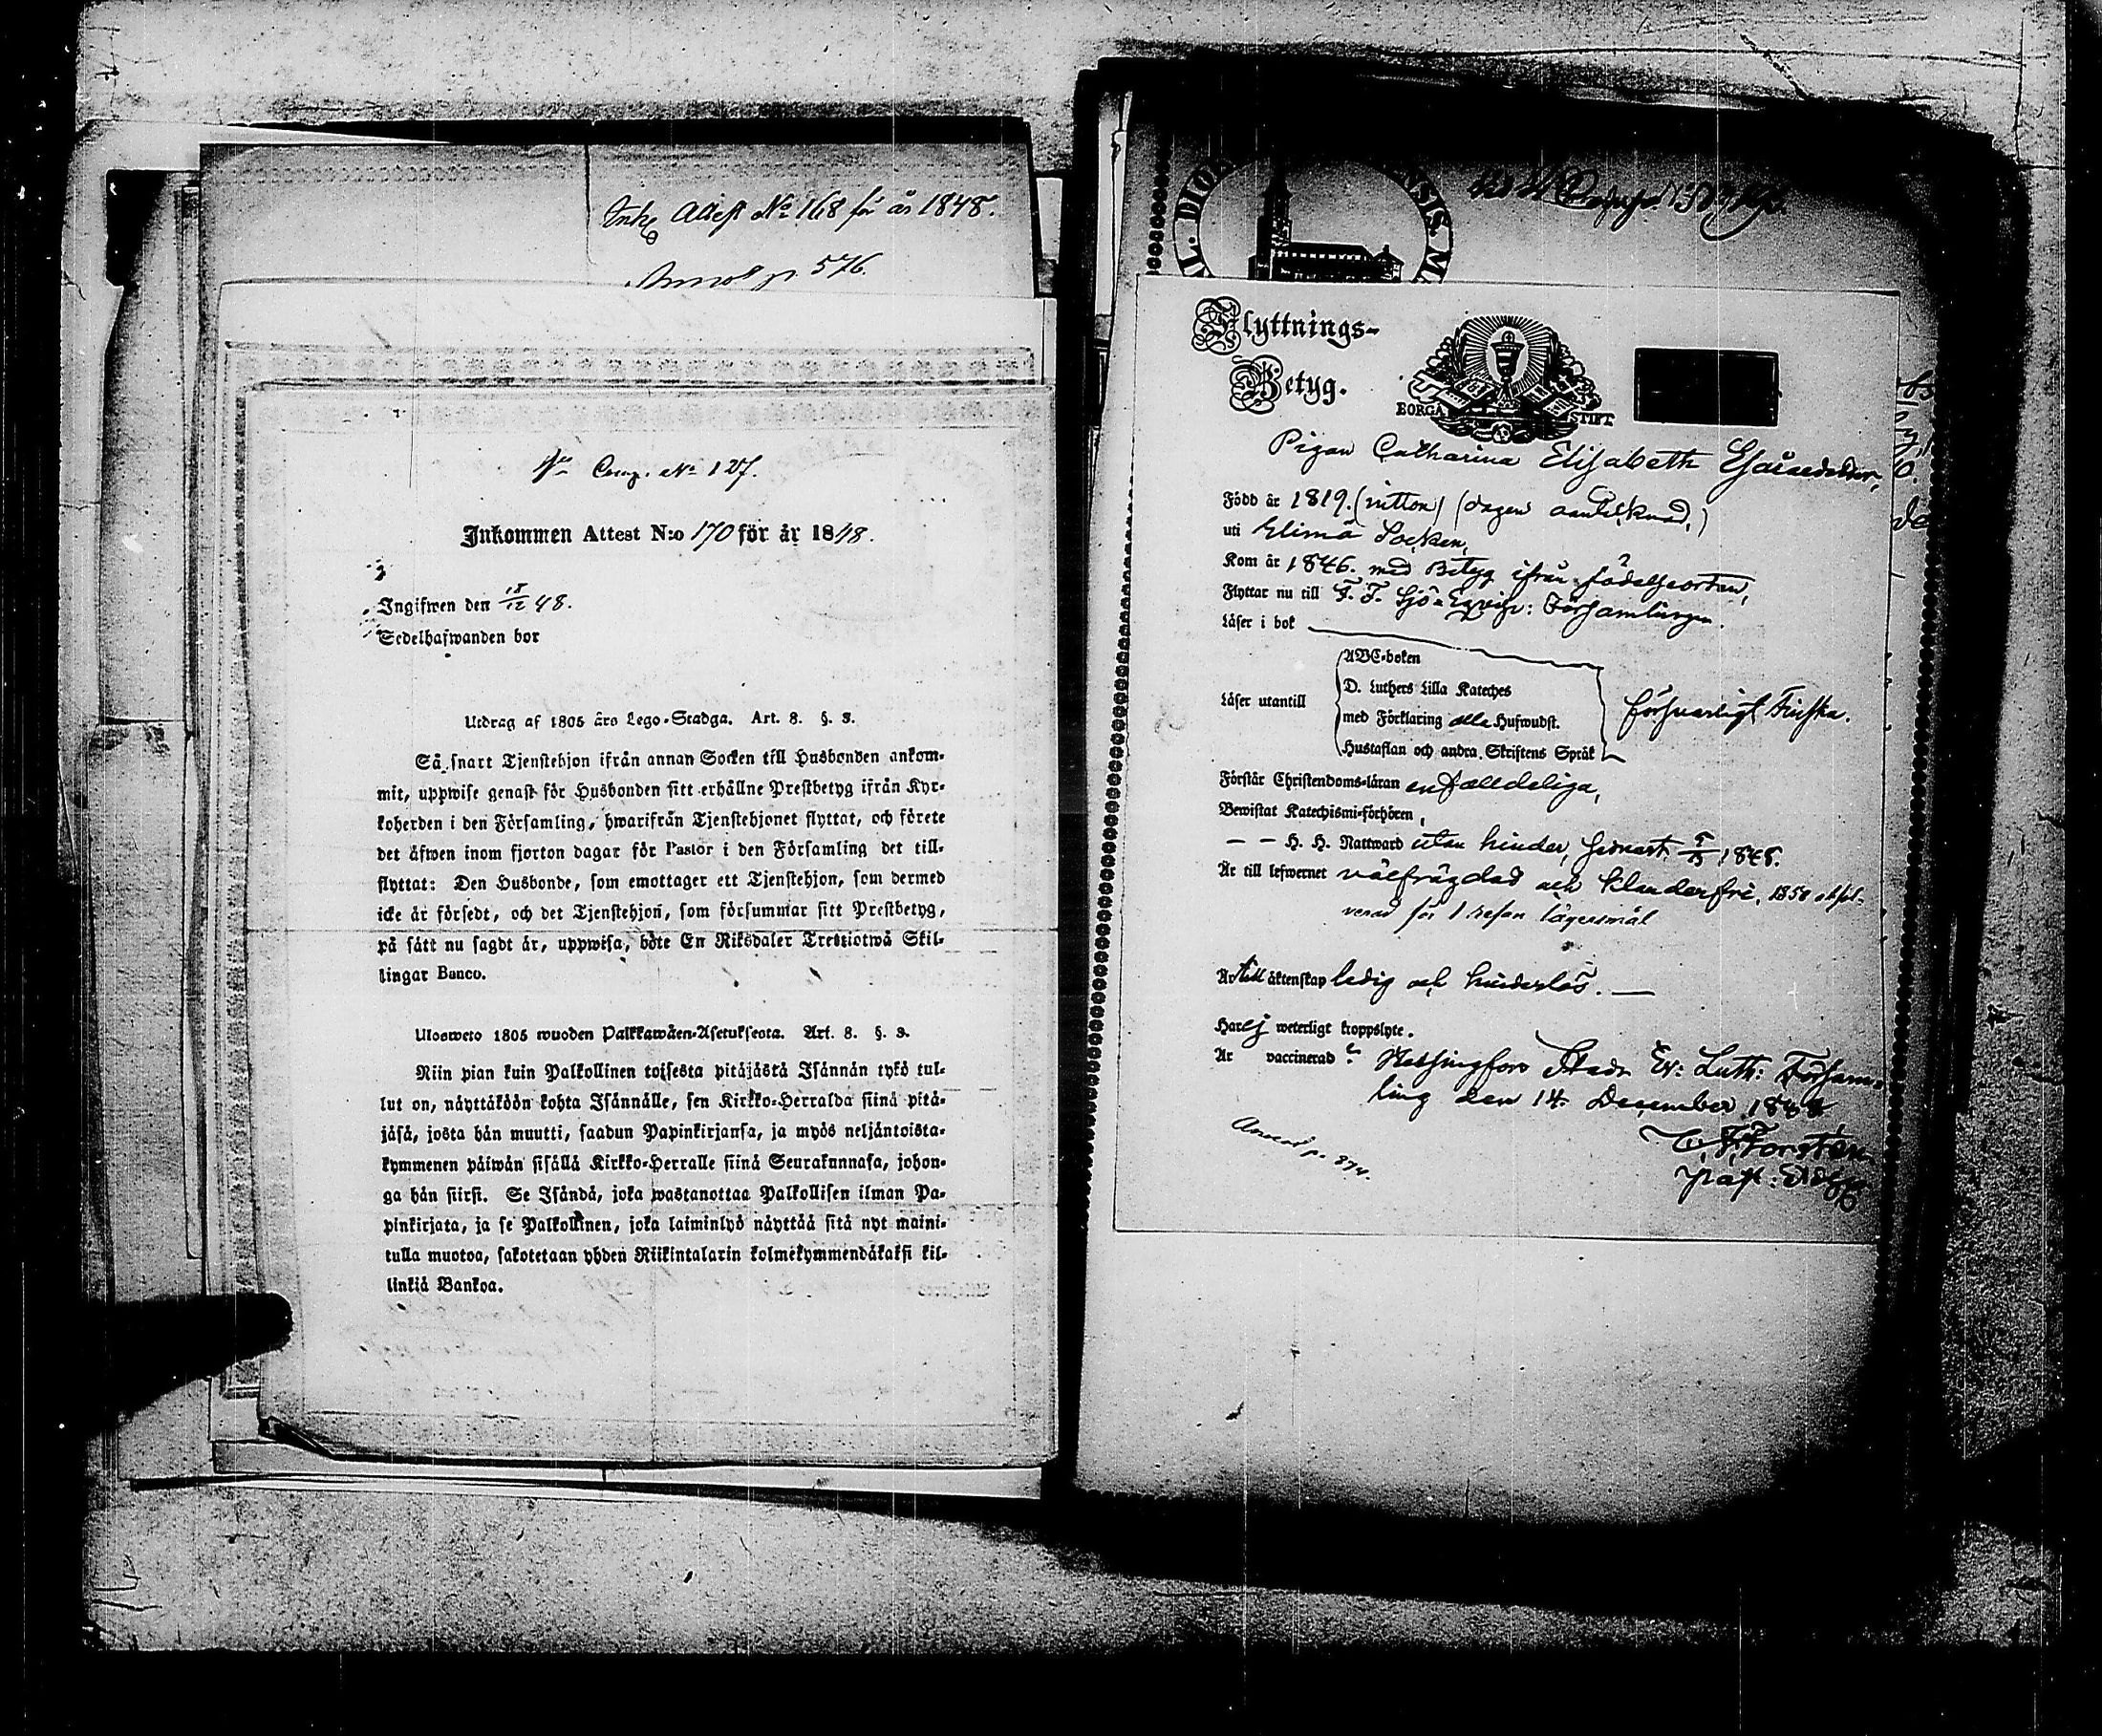 Inko Attest No 168 för år 1848.
Annot p. 576.
Comp. No 127.
Inkommen Attest N:o 170 för år 1848.
Ingifwen den 18/12 48.
Sedelhafwanden bor
Utdrag af 1805 års Lego-Stadga. Art. 8. §. 3.
Så snart Tjenstehjon ifrån annan Socken till Husbonden ankom-
mit, uppwise genast för Husbonden sitt erhållne Prestbetyg ifrån Kyr-
koherden i den Församling, hwarifrån Tjenstehjonet flyttat, och förete
det äfwen inom fjorton dagar för Pastor i den Församling det till-
flyttat: Den Husbonde, som emottager ett Tjenstehjon, som dermed
icke är försedt, och det Tjenstehjon, som försummar sitt Prestbetyg,
på sätt nu sagdt är, uppwisa, böte En Riksdaler Trettiotwå Skil-
lingar Banco.
Ulosweto 1805 wuoden Palkkawäen-Asetuksesta. Art. 8. §. 3.
Niin pian kuin Palkollinen toisesta pitäjästä Isännän tykö tul-
lut on, näyttäköön kohta Isännälle, sen Kirkko-Herralda siinä pitä-
jäsä, josta hän muutti, saadun Papinkirjansa, ja myös neljäntoista-
kymmenen päiwän sisällä Kirkko-Herralle siinä Seurakunnasa, johon-
ga hän siirsi. Se Isändä, joka wastanottaa Palkollisen ilman Pa-
pinkirjata, ja se Palkollinen, joka laiminlyö näyttää sitä nyt maini-
tulla muotoa, sakotetaan yhden Riikintalarin kolmekymmendäkaksi kil-
linkiä Bankoa.
Flyttnings-
Betyg.
BORGÅ STIFT
Pigan Catharina Elisabeth Esaiaedotter,
Född år 1819. (nitton) (dagen oantecknad,)
uti Elimä Socken,
Kom år 1846. med Betyg ifrån födelseorten,
Flyttar nu till F. F. Sjö-Equip: Församlingen.
Läser i bok
ABC-boken
D. Luthers Lilla Kateches
Läser utantill
med Förklaring alla Hufwudst.
Hustaflan och andra Skriftens Språk
försvarligt Finska.
Förstår Christendoms-läran enfalldeliga,
Bewistat Katechismi-förhören,
— — H. H. Nattward utan hinder, senast 1848.
Är till lefwernet välfrägdad och klanderfri,
för 1 resan lägersmål
Är till äktenskap ledig och hinderlös. —
Har ej weterligt kroppslyte.
Är vaccinerad? Helsingfors Stads Ev: Luth: Försam-
ling den 14 December 1848
Forstén
Annot p. 874.